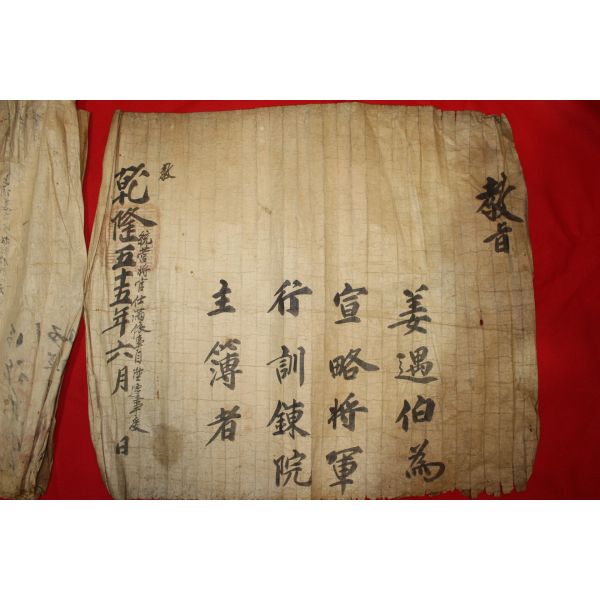 教旨
姜遇伯為
宣略將軍
行訓鍊院
主簿者
乾隆五十五年六月 日
統營將官仕滿
教